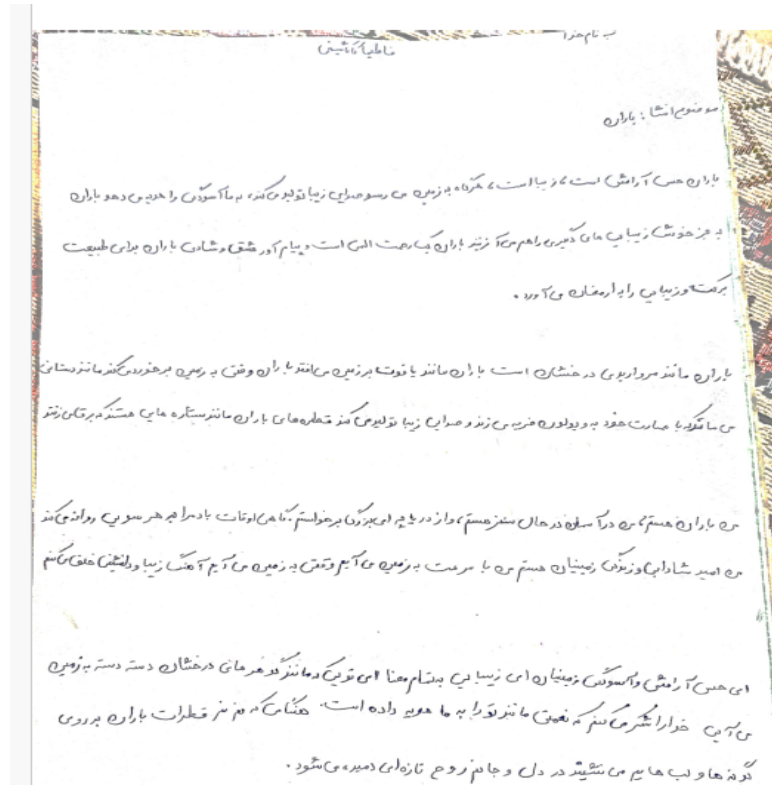 به نام خدا
موضوع انشا: باران
باران حس آرامش است، زیبا است، هرگاه به زمین می رسد صدایی زیبا تولید می کند، به ما آسودگی را هدیه می دهد باران
به جز خودش زیبایی های دیگری را هم می آفریند باران یک رحمت الهی است و پیام آور عشق و شادی باران برای طبیعت
برکت و زیبایی را به ارمغان می آورد.
باران مانند مرواریدی درخشان است باران مانند یاقوت بر زمین می افتد باران وقتی به زمین برخورد می کند مانند دستانی
می ماند که با مهارت خود به ویولون ضربه می زند و صدایی زیبا تولید می کند قطره های باران مانند ستاره هایی هستند که برق می زنند
من باران هستم، من در آسمان در حال سفر هستم، و از دریاچه ای بزرگ برخواستم. گاهی اوقات باد مرا به هر سویی روانه می کند
من امید شادابی و زندگی زمینیان هستم من با سرعت به زمین می آیم وقتی به زمین می آیم آهنگ زیبا و دلنشین خلق می کنم
ای حس آرامش و آسودگی زمینیان ای زیبایی به تمام معنا ای تویی که مانند گوهر هایی درخشان دسته دسته به زمین
می آیی خدا را شکر می کنم که نعمتی مانند تو را به ما هدیه داده است. هنگامی که نم نم قطرات باران بر روی
گونه ها و لب هایم می نشیند در دل و جانم روح تازه ای دمیده می شود.